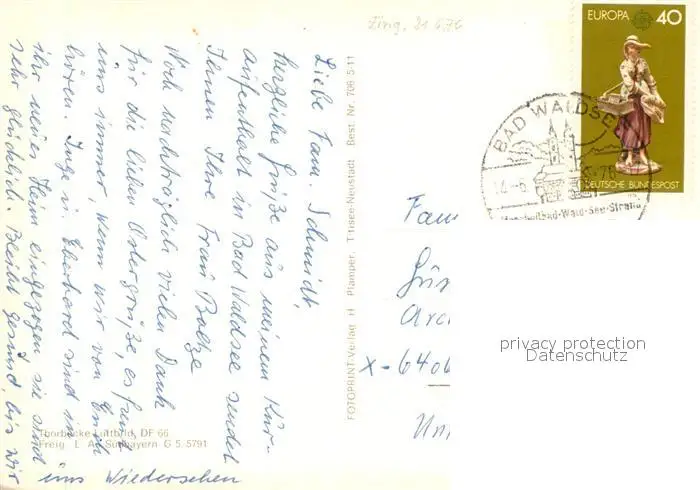 Eing. 21.6.76
Liebe Fam. Schmidt,
herzliche Grüße aus meinem Kur-
aufenthalt in Bad Waldsee sendet
Ihnen Ihre Frau
Noch nachträglich vielen Dank
für die lieben Ostergrüße, es freut
uns immer, wenn wir von Euch
hören. Inge u. Eberhard sind in
ihr neues Heim eingezogen sie sind
sehr glücklich. Bleibt gesund, bis wir
uns Wiedersehen
Thorbecke-Luftbild, DF 66
Freig. L. A. Südbayern G 5 5791
FOTOPRINT-Verlag H. Plamper, Titisee-Neustadt Best. Nr. 706-5-11
EUROPA 40
DEUTSCHE BUNDESPOST
BAD WALDSEE
-76
Wald-See-Straße
Fam
X-6406
privacy protection
Datenschutz